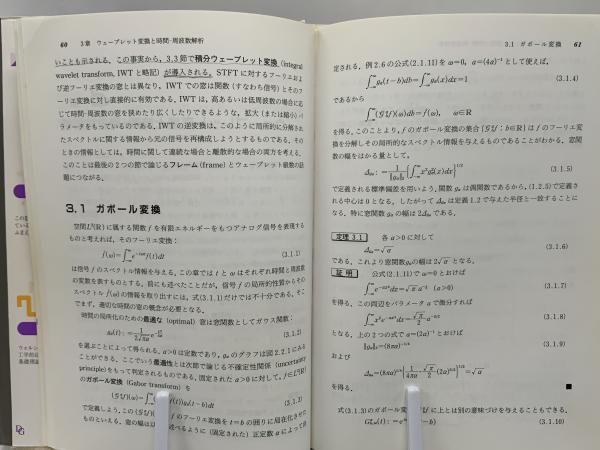 60　3章　ウェーブレット変換と時間-周波数解析
いことも示される．この事実から，3.3節で積分ウェーブレット変換(integral
wavelet transform, IWTと略記)が導入される．STFTに対するフーリエおよ
び逆フーリエ変換の窓とは異なり，IWTでの窓の関数(すなわち信号)とそのフ
ーリエ変換に対し直接的に有効である．IWTは，高あるいは低周波数の場合に応
じて時間-周波数の窓を狭めたり広くしたりできるような，拡大(または縮小)パ
ラメータをもっているのである．IWTの逆変換は，このように局所的に分解され
たスペクトルに関する情報から元の信号を再構成しようとするものである．その
ときの情報としては，時間に関して連続な場合と離散的な場合の両方を考える．
このことは最後の2つの節で論じるフレーム(frame)とウェーブレット級数の話
題につながる．
3.1　ガボール変換
空間L²(R)に属する関数fを有限エネルギーをもつアナログ信号を表現する
ものと考えれば，そのフーリエ変換：
f̂(ω)=∫_{-∞}^{∞}e^{-iωt}f(t)dt　(3.1.1)
は信号fのスペクトル情報を与える．この章ではtとωはそれぞれ時間と周波数
の変数を表すものとする．前にも述べたことだが，信号fの局所的性質からその
スペクトルf̂(ω)の情報を取り出すには，式(3.1.1)だけでは不十分である．そこ
でまず，適切な時間の窓の概念が必要となる．
時間の局所化のための最適な(optimal)窓は窓関数としてガウス関数：
g_α(t):=1/(2√(πα)) e^{-t²/4α}　(3.1.2)
を選ぶことによって得られる．α>0は定数であり，g_αのグラフは図2.2.1にみる
ことができる．ここでいう最適性とは次節で論じる不確定性関係(uncertainty
principle)をもって判定されるものである．固定されたα>0に対して，f∈L²(R)
のガボール変換(Gabor transform)を
f(t))g_α(t-b)dt　(3.1.3)
で定義しよう．この
fのフーリエ変換をt=bの囲りに局在化させた
ものといえる．窓の幅は
述べるように(固定された)正定数αによって
3.1　ガボール変換　61
定される．例2.6の公式(2.1.11)をω=0, a=(4α)^{-1}として使えば，
∫_{-∞}^{∞}g_α(t-b)db=∫_{-∞}^{∞}g_α(x)dx=1　(3.1.4)
であるから
∫_{-∞}^{∞}(𝒢_b^α f)(ω)db=f̂(ω),　ω∈R
を得る．このことより，fのガボール変換の集合{𝒢_b^α f : b∈R}はfのフーリエ変
換を分解しその局所的なスペクトル情報を与えるものであることがわかる．窓関
数の幅をはかる量として，
Δ_{gα}:=1/‖g_α‖₂{∫_{-∞}^{∞}x²g_α²(x)dx}^{1/2}　(3.1.5)
で定義される標準偏差を用いよう．関数g_αは偶関数であるから，(1.2.5)で定義さ
れる中心は0となる．したがってΔ_{gα}は定義1.2で与えた半径と一致することに
なる．特に窓関数g_αの幅は2Δ_{gα}である．
定理3.1　各α>0に対して
Δ_{gα}=√α　(3.1.6)
である．これより窓関数g_αの幅は2√αとなる．
証明　公式(2.1.11)でω=0とおけば
∫_{-∞}^{∞}e^{-ax²}dx=√π a^{-1/2}　(a>0)　(3.1.7)
を得る．この両辺をパラメータaで微分すれば
∫_{-∞}^{∞}x²e^{-ax²}dx=(√π/2)a^{-3/2}　(3.1.8)
となる．上の2つの式でa=(2α)^{-1}とおけば
‖g_α‖₂=(8πα)^{-1/4}　(3.1.9)
および
Δ_{gα}=(8πα)^{1/4}{1/(4πα)·(√π/2)(2α)^{3/2}}^{1/2}=√α
を得る．　■
式(3.1.3)のガボール変
に上とは別の意味づけを与えることもできる．
(3.1.10)